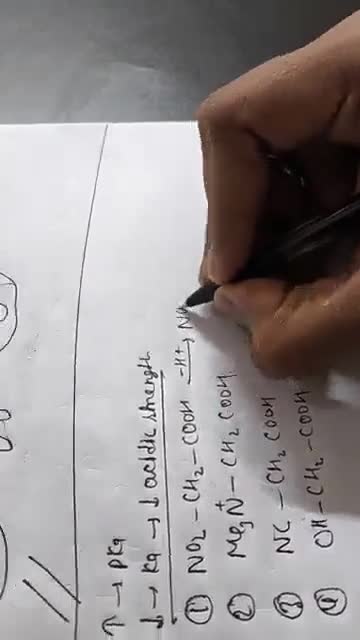 ↑ → pKa
↓ → Ka → ↓ acidic strength
① NO₂ – CH₂ – COOH –H⁺→ NO
② Me₃N⁺ – CH₂ COOH
③ NC – CH₂ COOH
④ OH – CH₂ – COOH